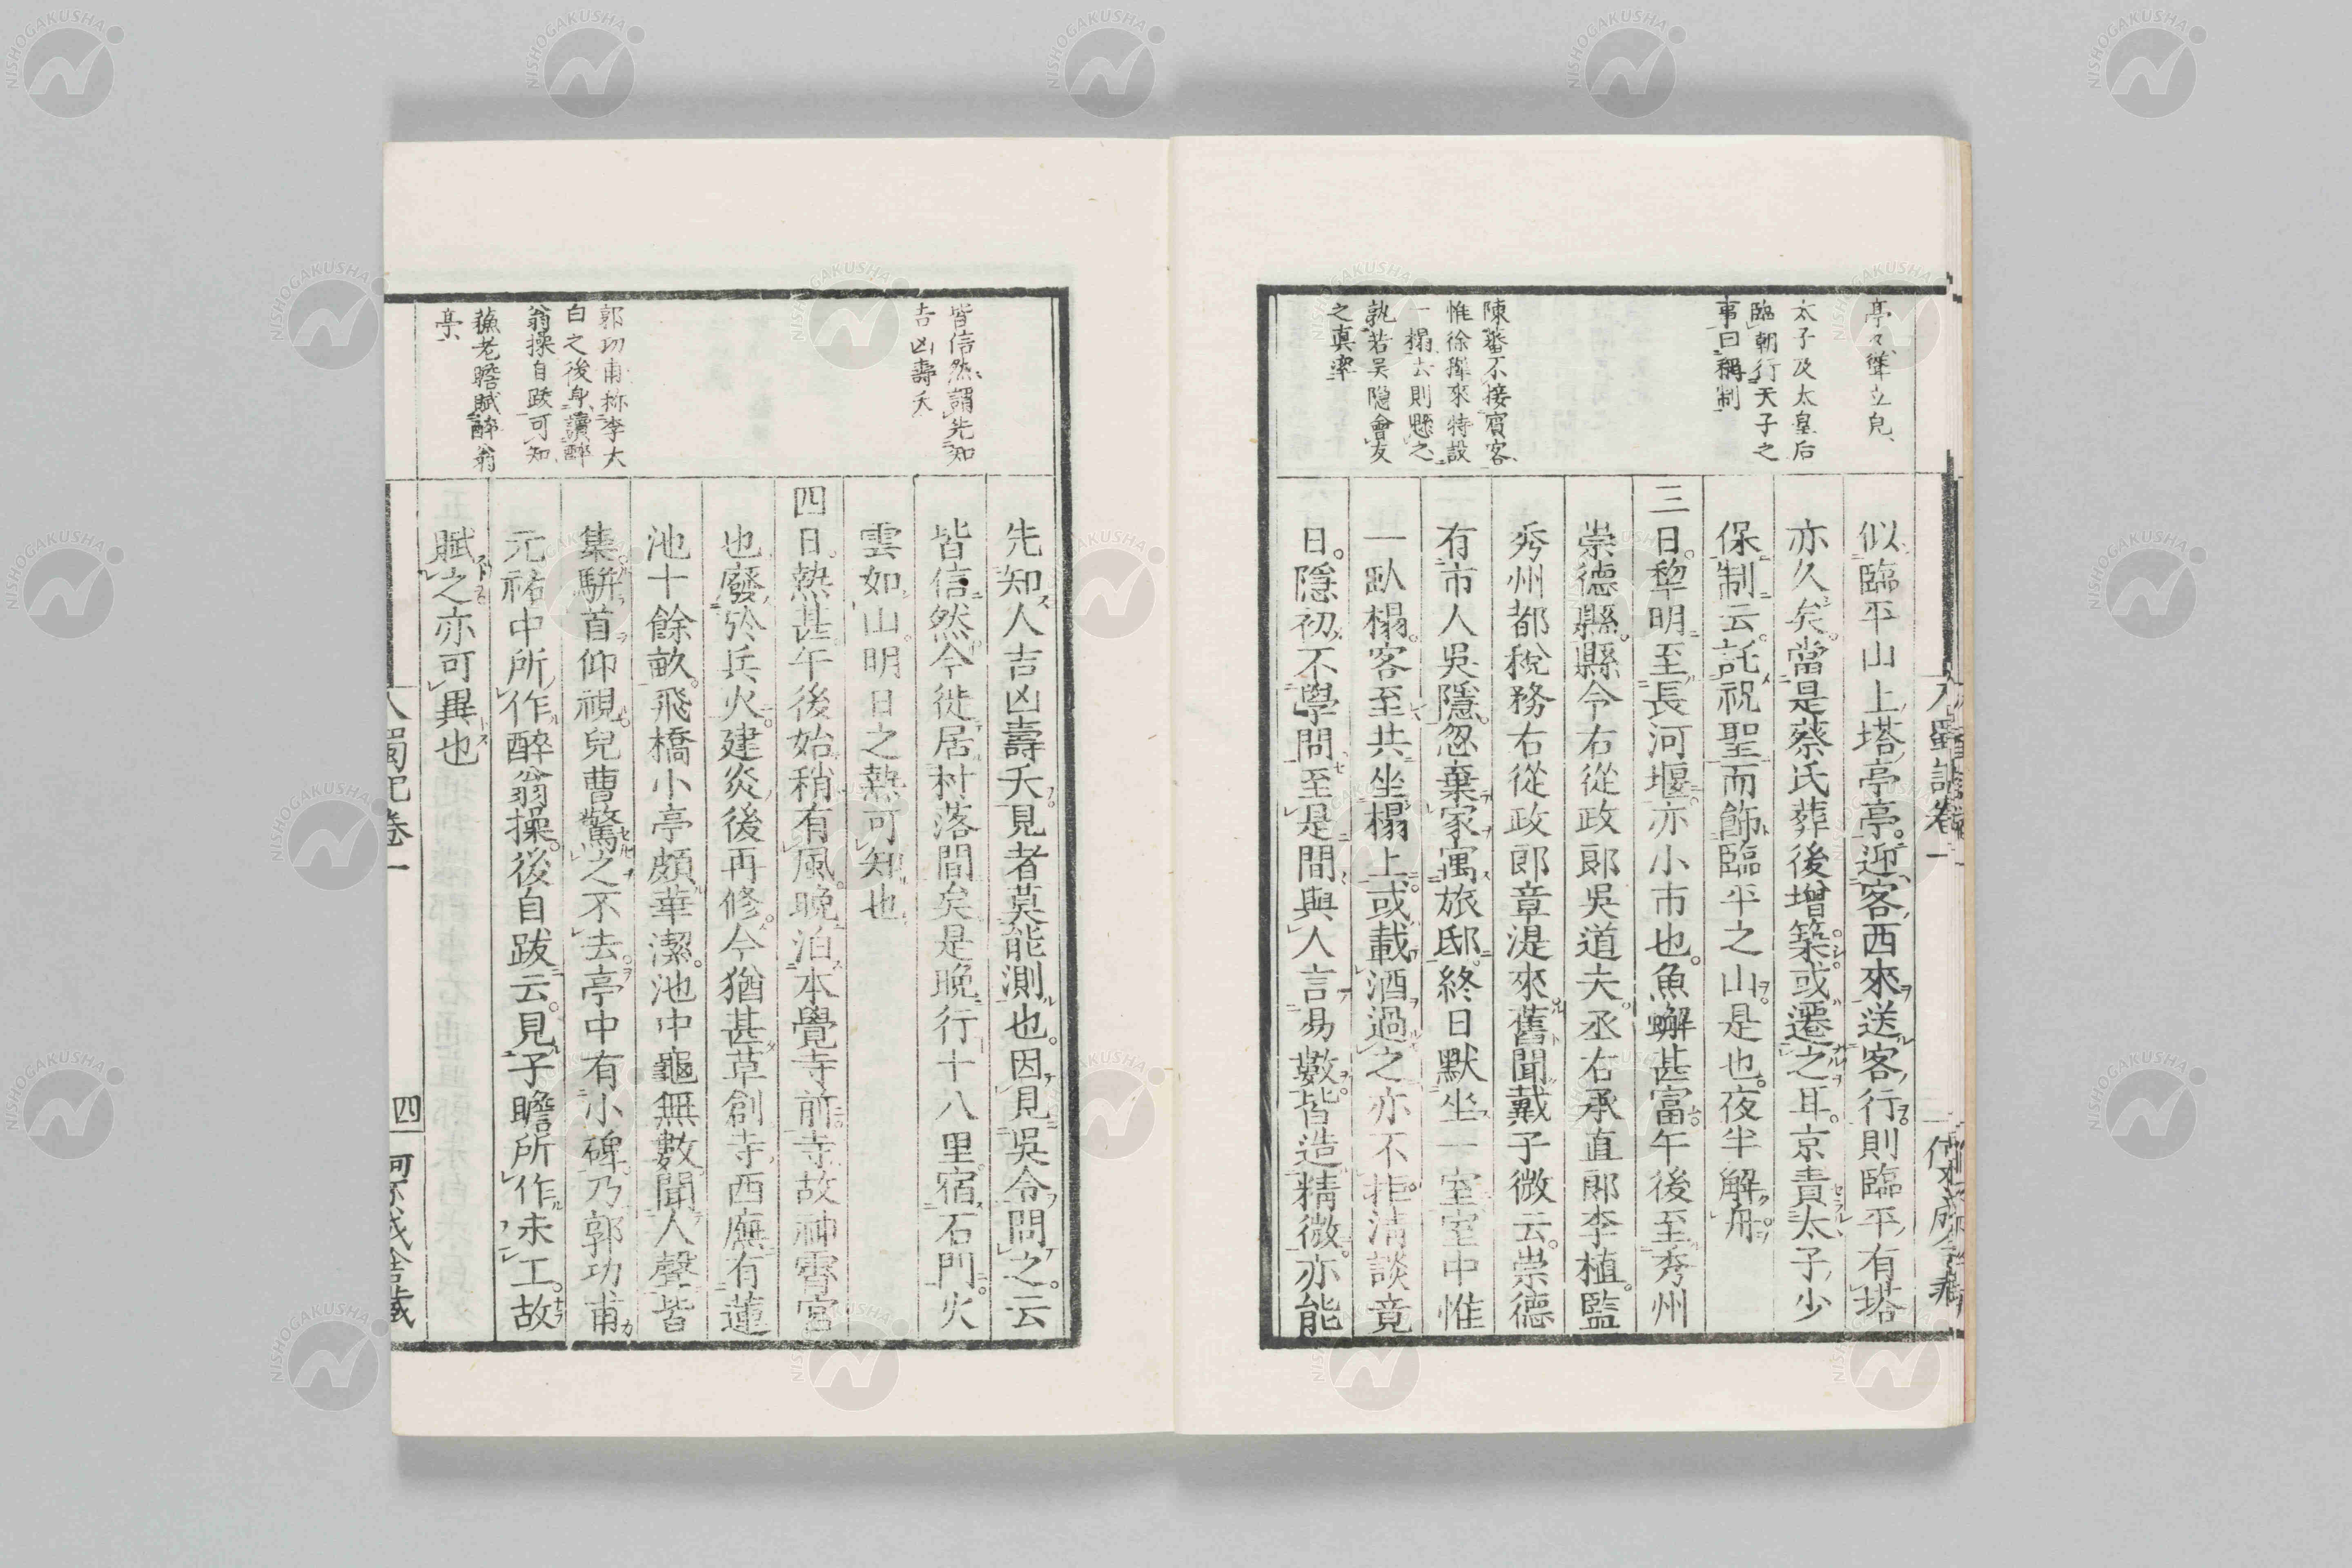 亭々聳立皃
太子及太皇后
臨朝行天子之
事曰稱制
陳蕃不接賓客
惟徐穉來特設
一榻去則懸之
孰若吴隐會友
之真率
似臨平山上塔亭亭迎客西來送客行則臨平有塔
亦久矣當是蔡氏葬後增築或遷之耳京責太子少
保制云託祝聖而飾臨平之山是也夜半解舟
三日犂明至長河堰亦小市也魚蠏甚富午後至秀州
崇德縣縣令右從政郎吳道夫丞右承直郎李植監
秀州都稅務右從政郎章湜來舊聞戴子微云崇德
有市人吳隱忽棄家寓旅邸終日默坐一室室中惟
一臥榻客至共坐榻上或載酒過之亦不拒清談竟
日隱初不學問至是間與人言易數皆造精微亦能
皆信然謂先知
吉凶壽夭
郭功甫称李太
白之後身讀醉
翁操自跋可知
蘓老瞻賦醉翁
亭
先知人吉凶壽夭見者莫能測也因見吳令問之云
皆信然今徙居村落間矣是晚行十八里宿石門火
雲如山明日之熱可知也
四日熱甚午後始稍有風晚泊本覺寺前寺故神霄宮
也廢於兵火建炎後再修今猶甚草創寺西廡有蓮
池十餘畝飛橋小亭頗華潔池中龜無數聞人聲皆
集駢首仰視兒曹驚之不去亭中有小碑乃郭功甫
元祐中所作醉翁操後自跋云見子瞻所作未工故
賦之亦可異也
入蜀記卷一
四